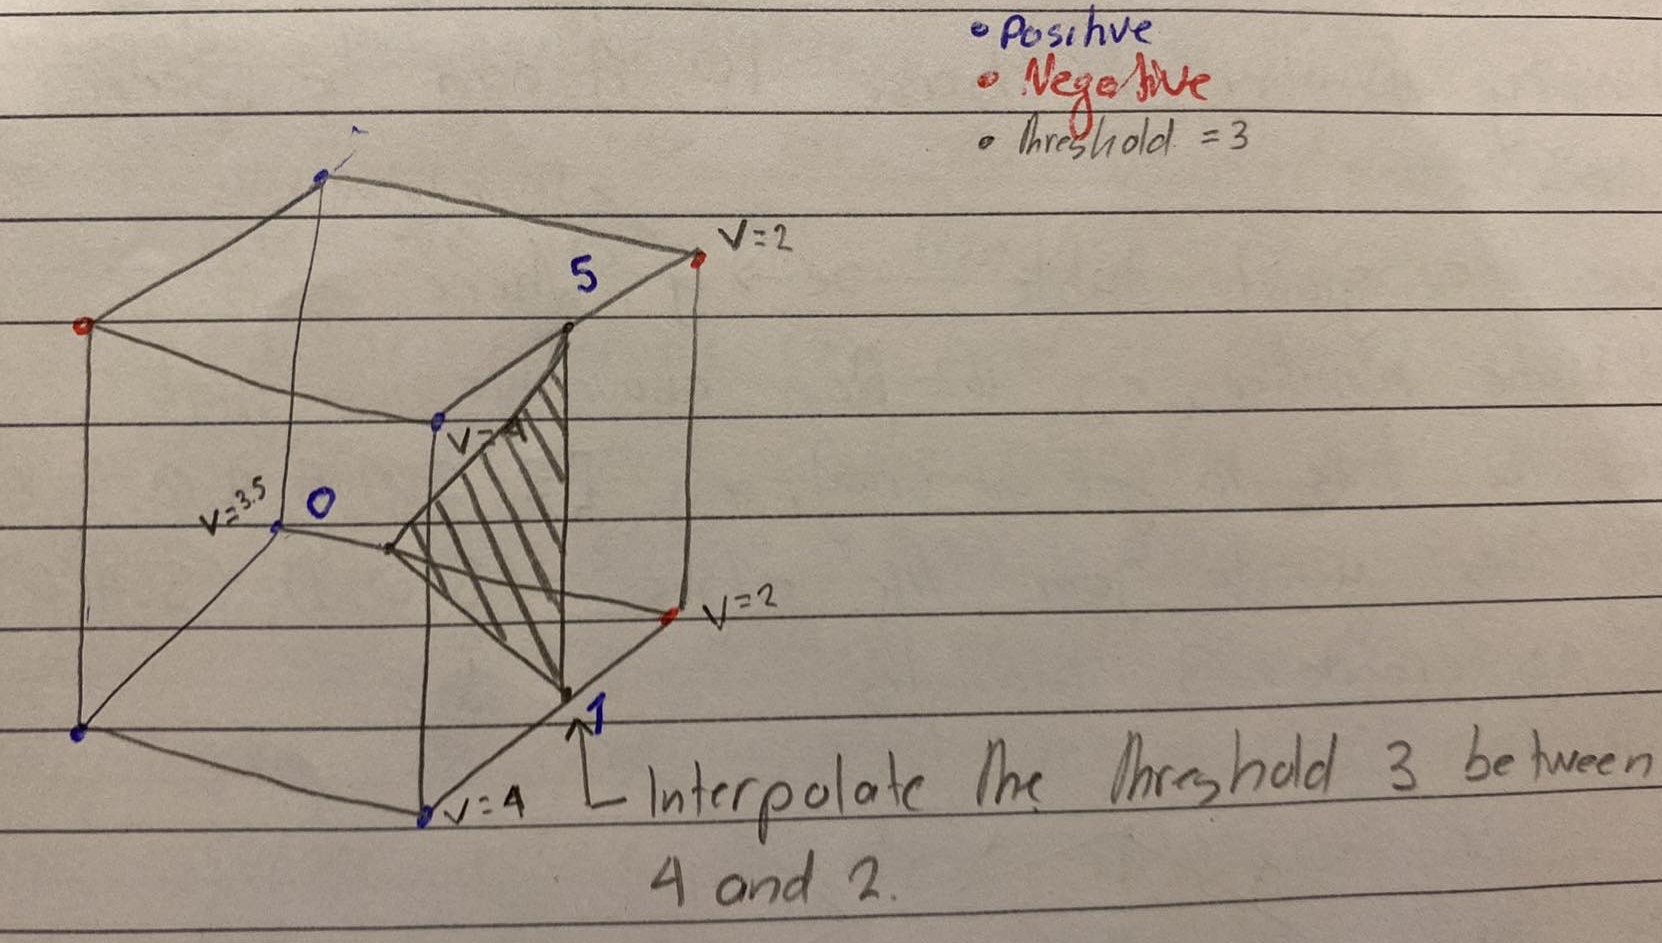 • Positive
• Negative
• Threshold = 3
V=2
5
V=4
V=3.5
0
V=2
1
V=4
Interpolate the threshold 3 between
4 and 2.